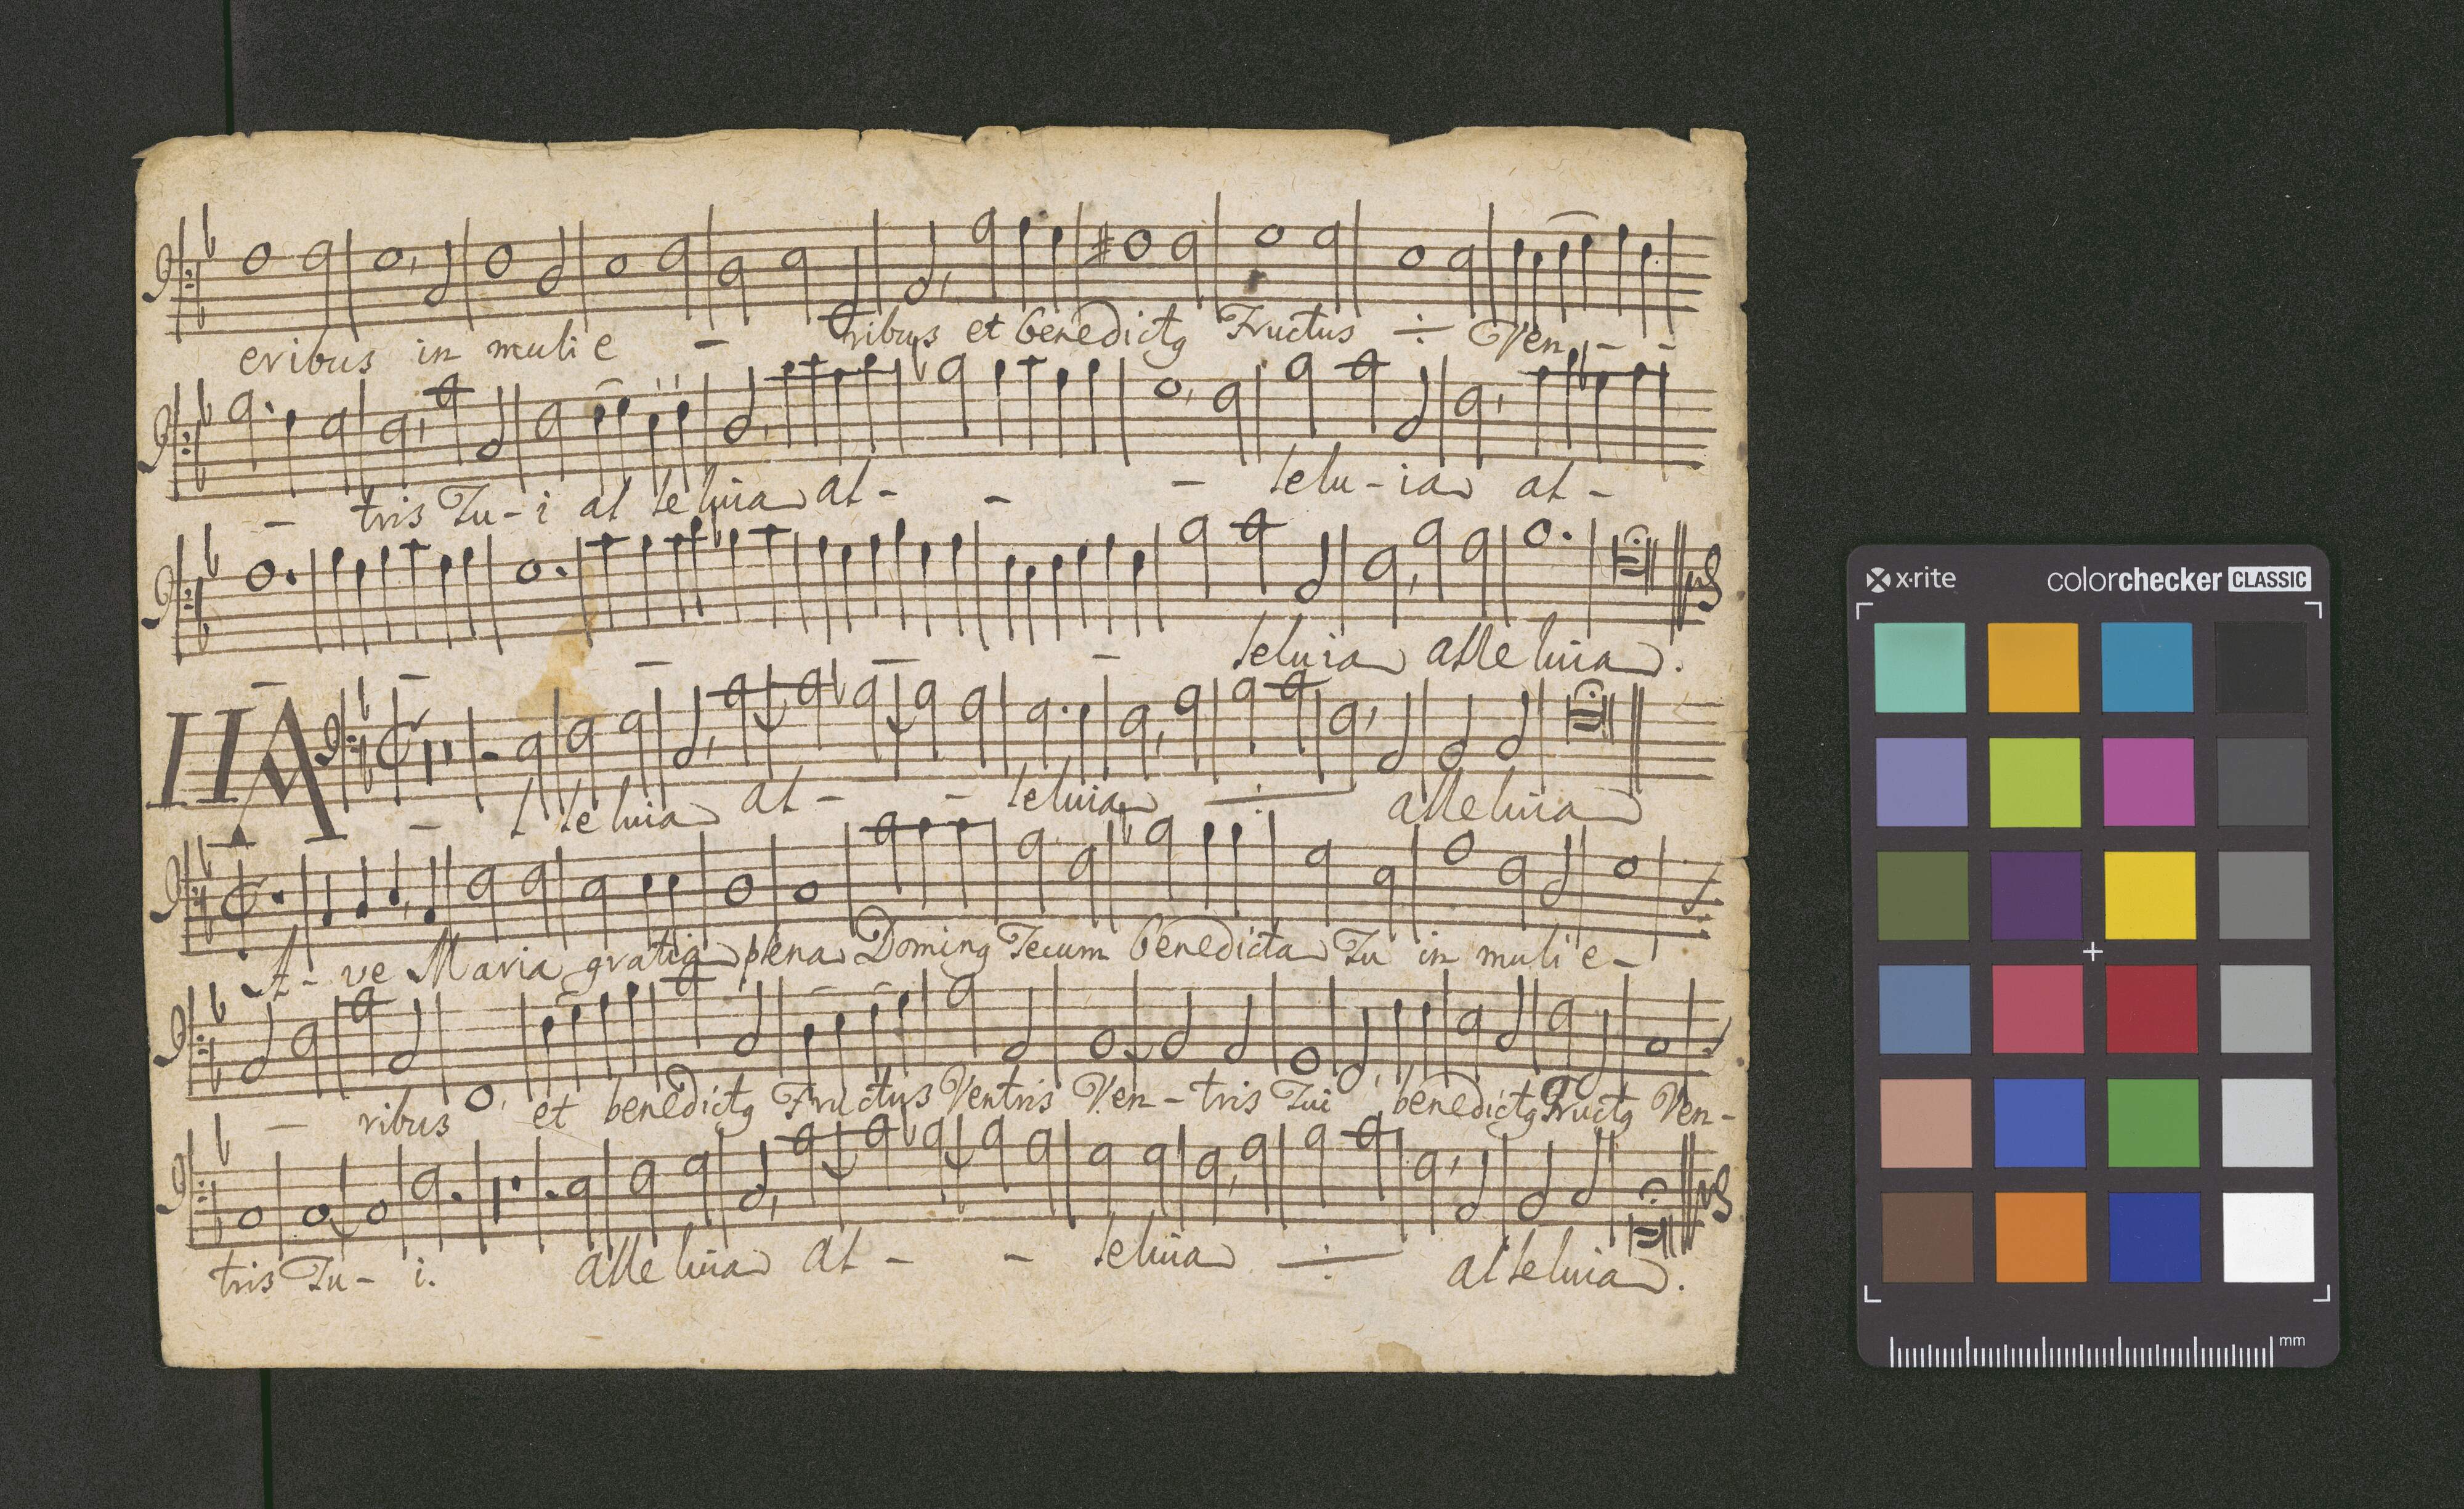 eribus in mulie - ribus et benedictꝯ Fructus ÷ Ven - -
- tris Tu - i al leluia al - - - lelu - ia al -
- - - - - leluia alleluia.
IIA l leluia al - - leluia ÷ alleluia
A - ve Maria gratia plena Dominꝯ Tecum benedicta Tu in mulie -
- ribus et benedictꝯ Fructus Ventris Ven - tris Tui benedictꝯ Fructꝯ Ven -
tris Tu - i. alleluia al - - leluia ÷ alleluia.
x·rite colorchecker CLASSIC
mm